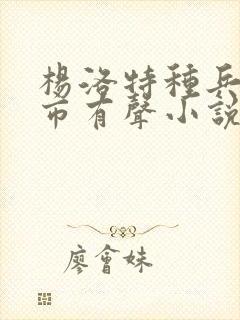 楊洛特種兵
市有聲小說
廖會妹